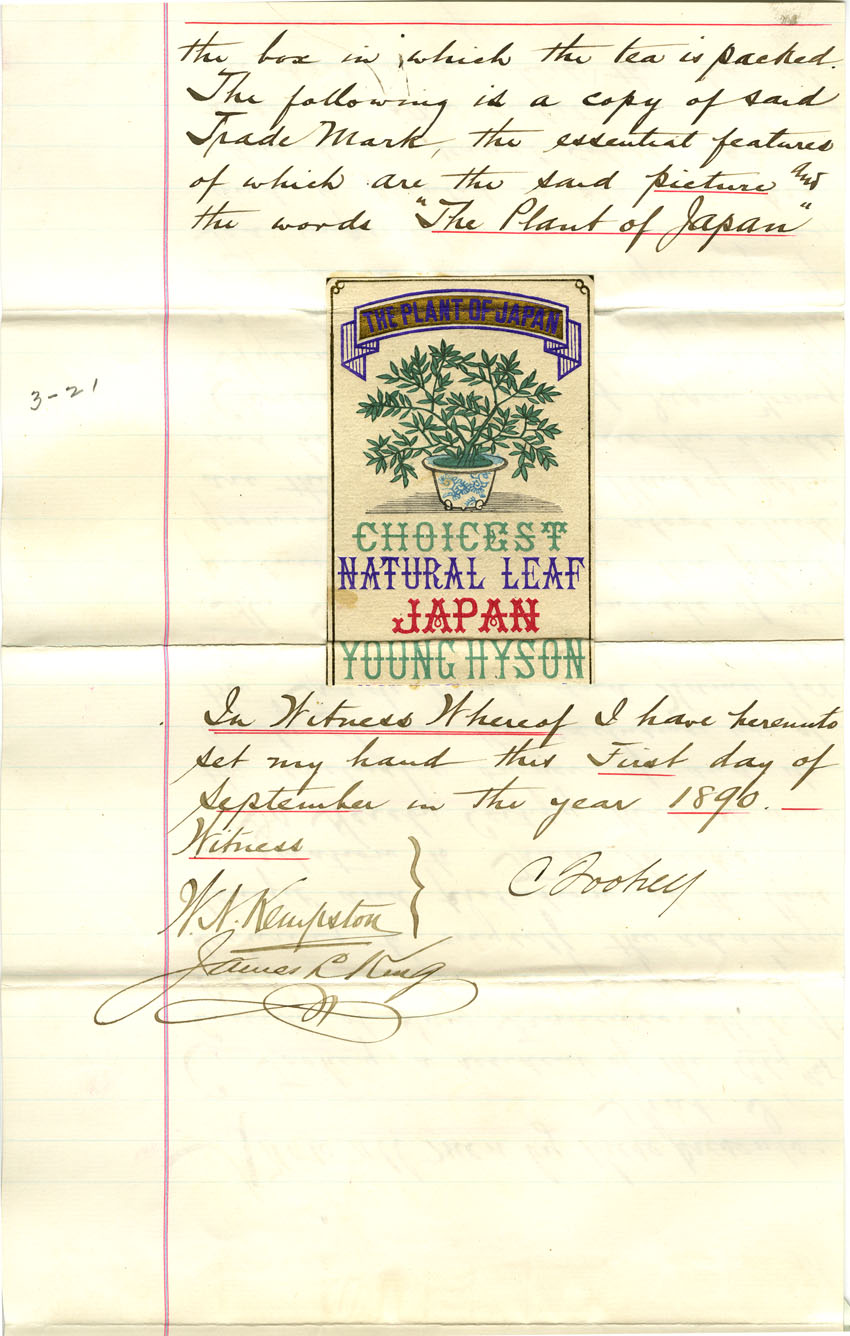 the box in which the tea is packed.
The following is a copy of said
Trade Mark, the essential features
of which are the said picture and
the words "The Plant of Japan"
THE PLANT OF JAPAN
3-21
CHOICEST
NATURAL LEAF
JAPAN
YOUNG HYSON
In Witness Whereof I have hereunto
set my hand this First day of
September in the year 1890.
Witness
W. N. Kempston
James R King